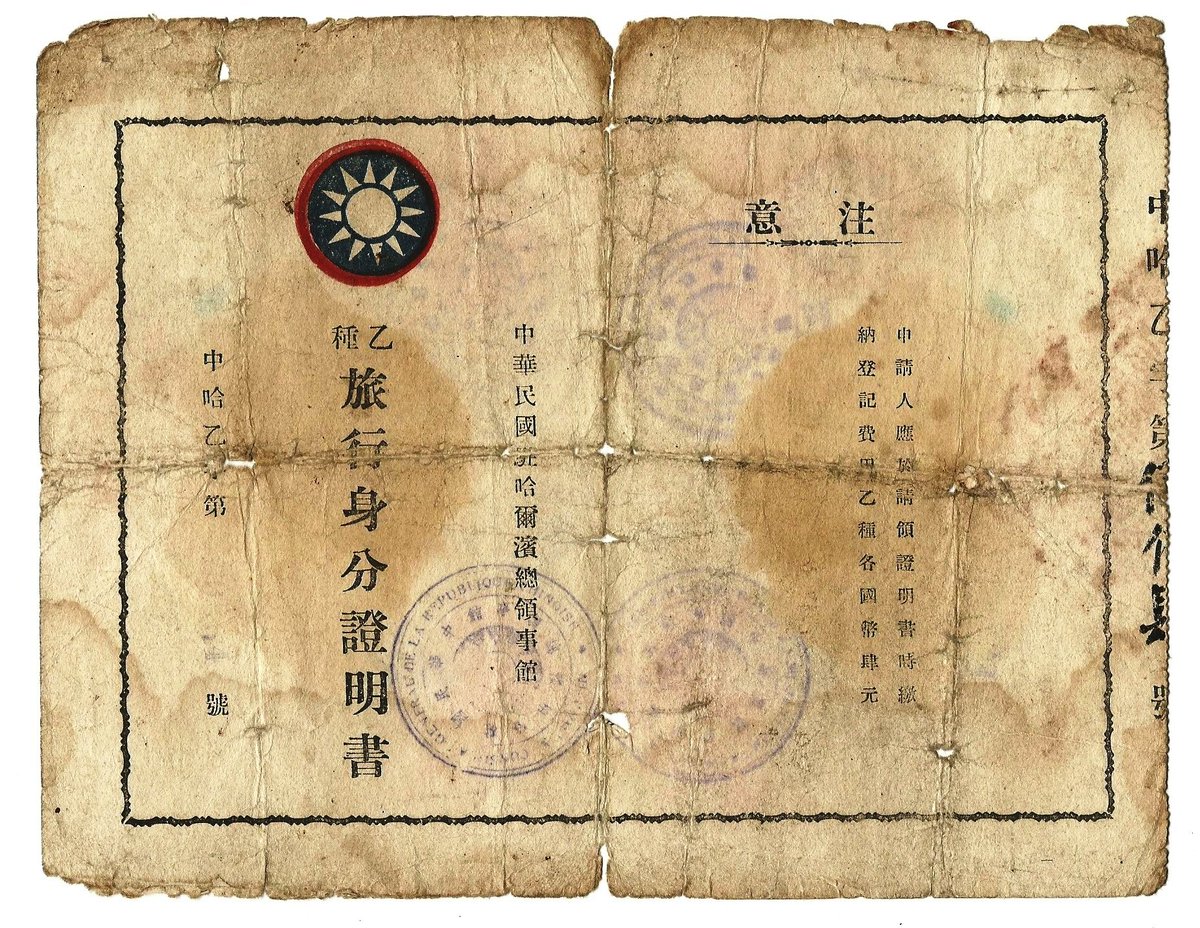 注意
申請人應於請領證明書時繳
納登記費用乙種各國幣肆元
中華民國駐哈爾濱總領事館
乙種
旅行身分證明書
中哈乙字第 號
中哈乙字第 號
GENERAL DE LA REPUBLIQUE CHINOISE